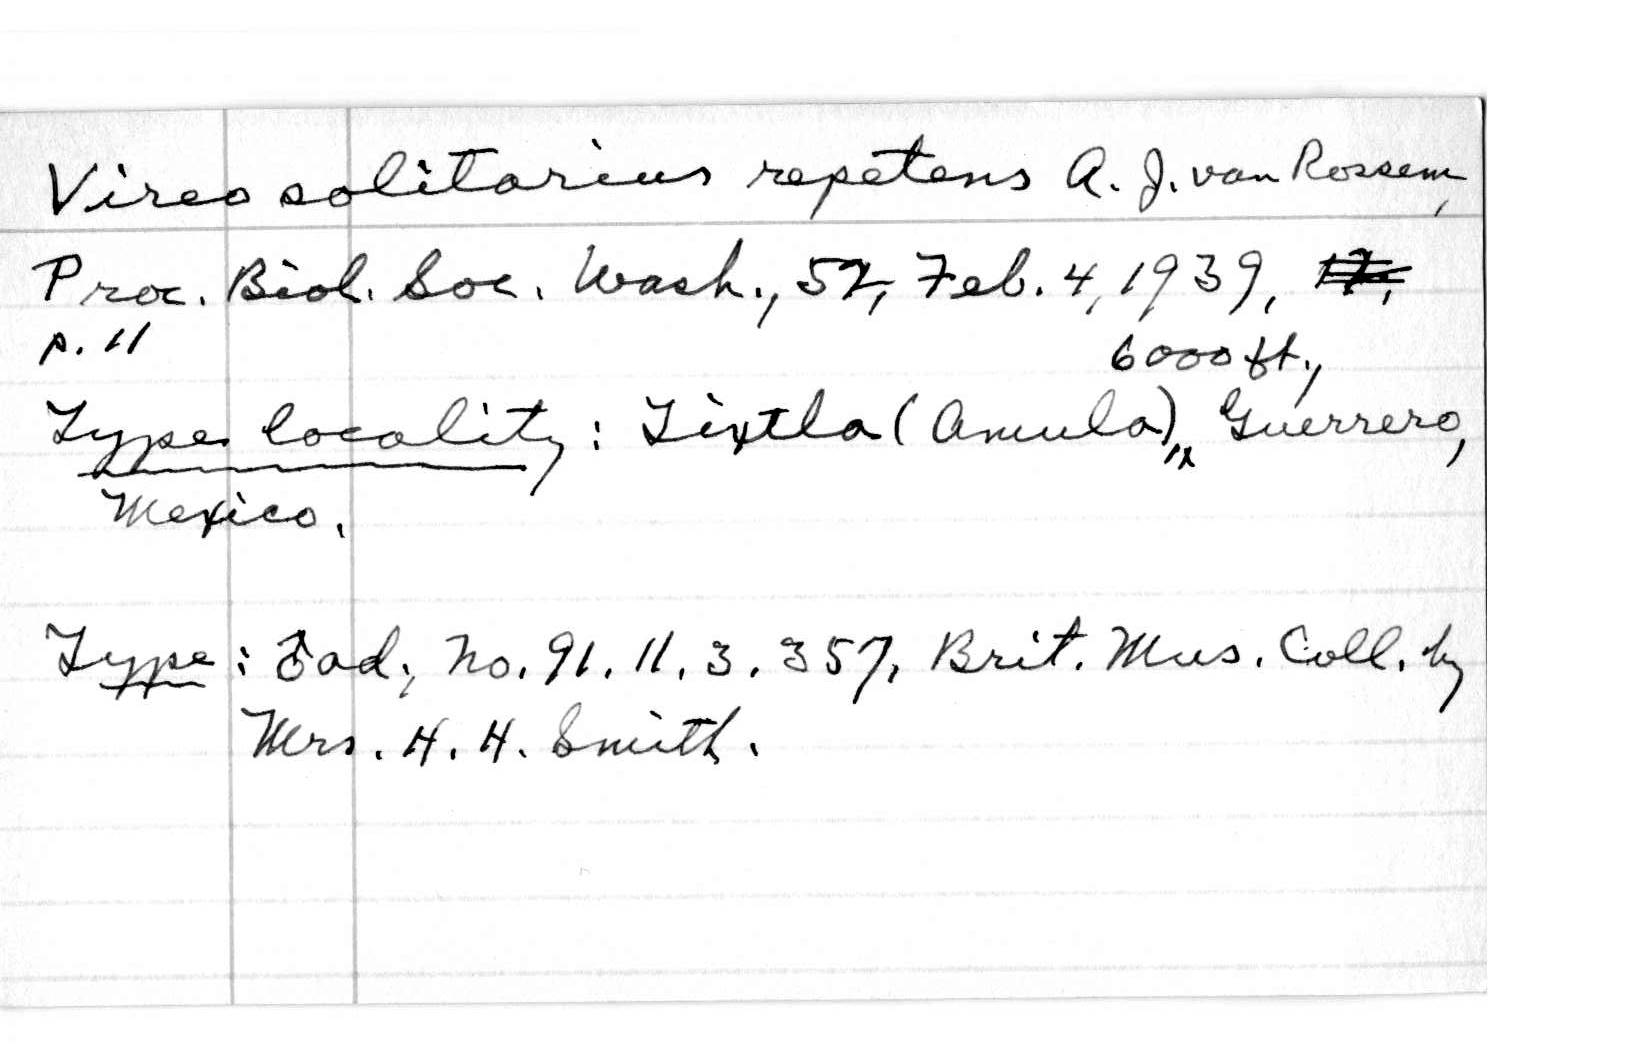 Vireo solitarius repetens A. J. van Rossem,
Proc. Biol. Soc. Wash., 52, Feb. 4, 1939,
p. 11
6000 ft.,
Type locality: Tixtla (Amula), Guerrero,
Mexico.
Type: ad, No. 91.11.3.357, Brit. Mus. Coll. by
Mrs. H. H. Smith.